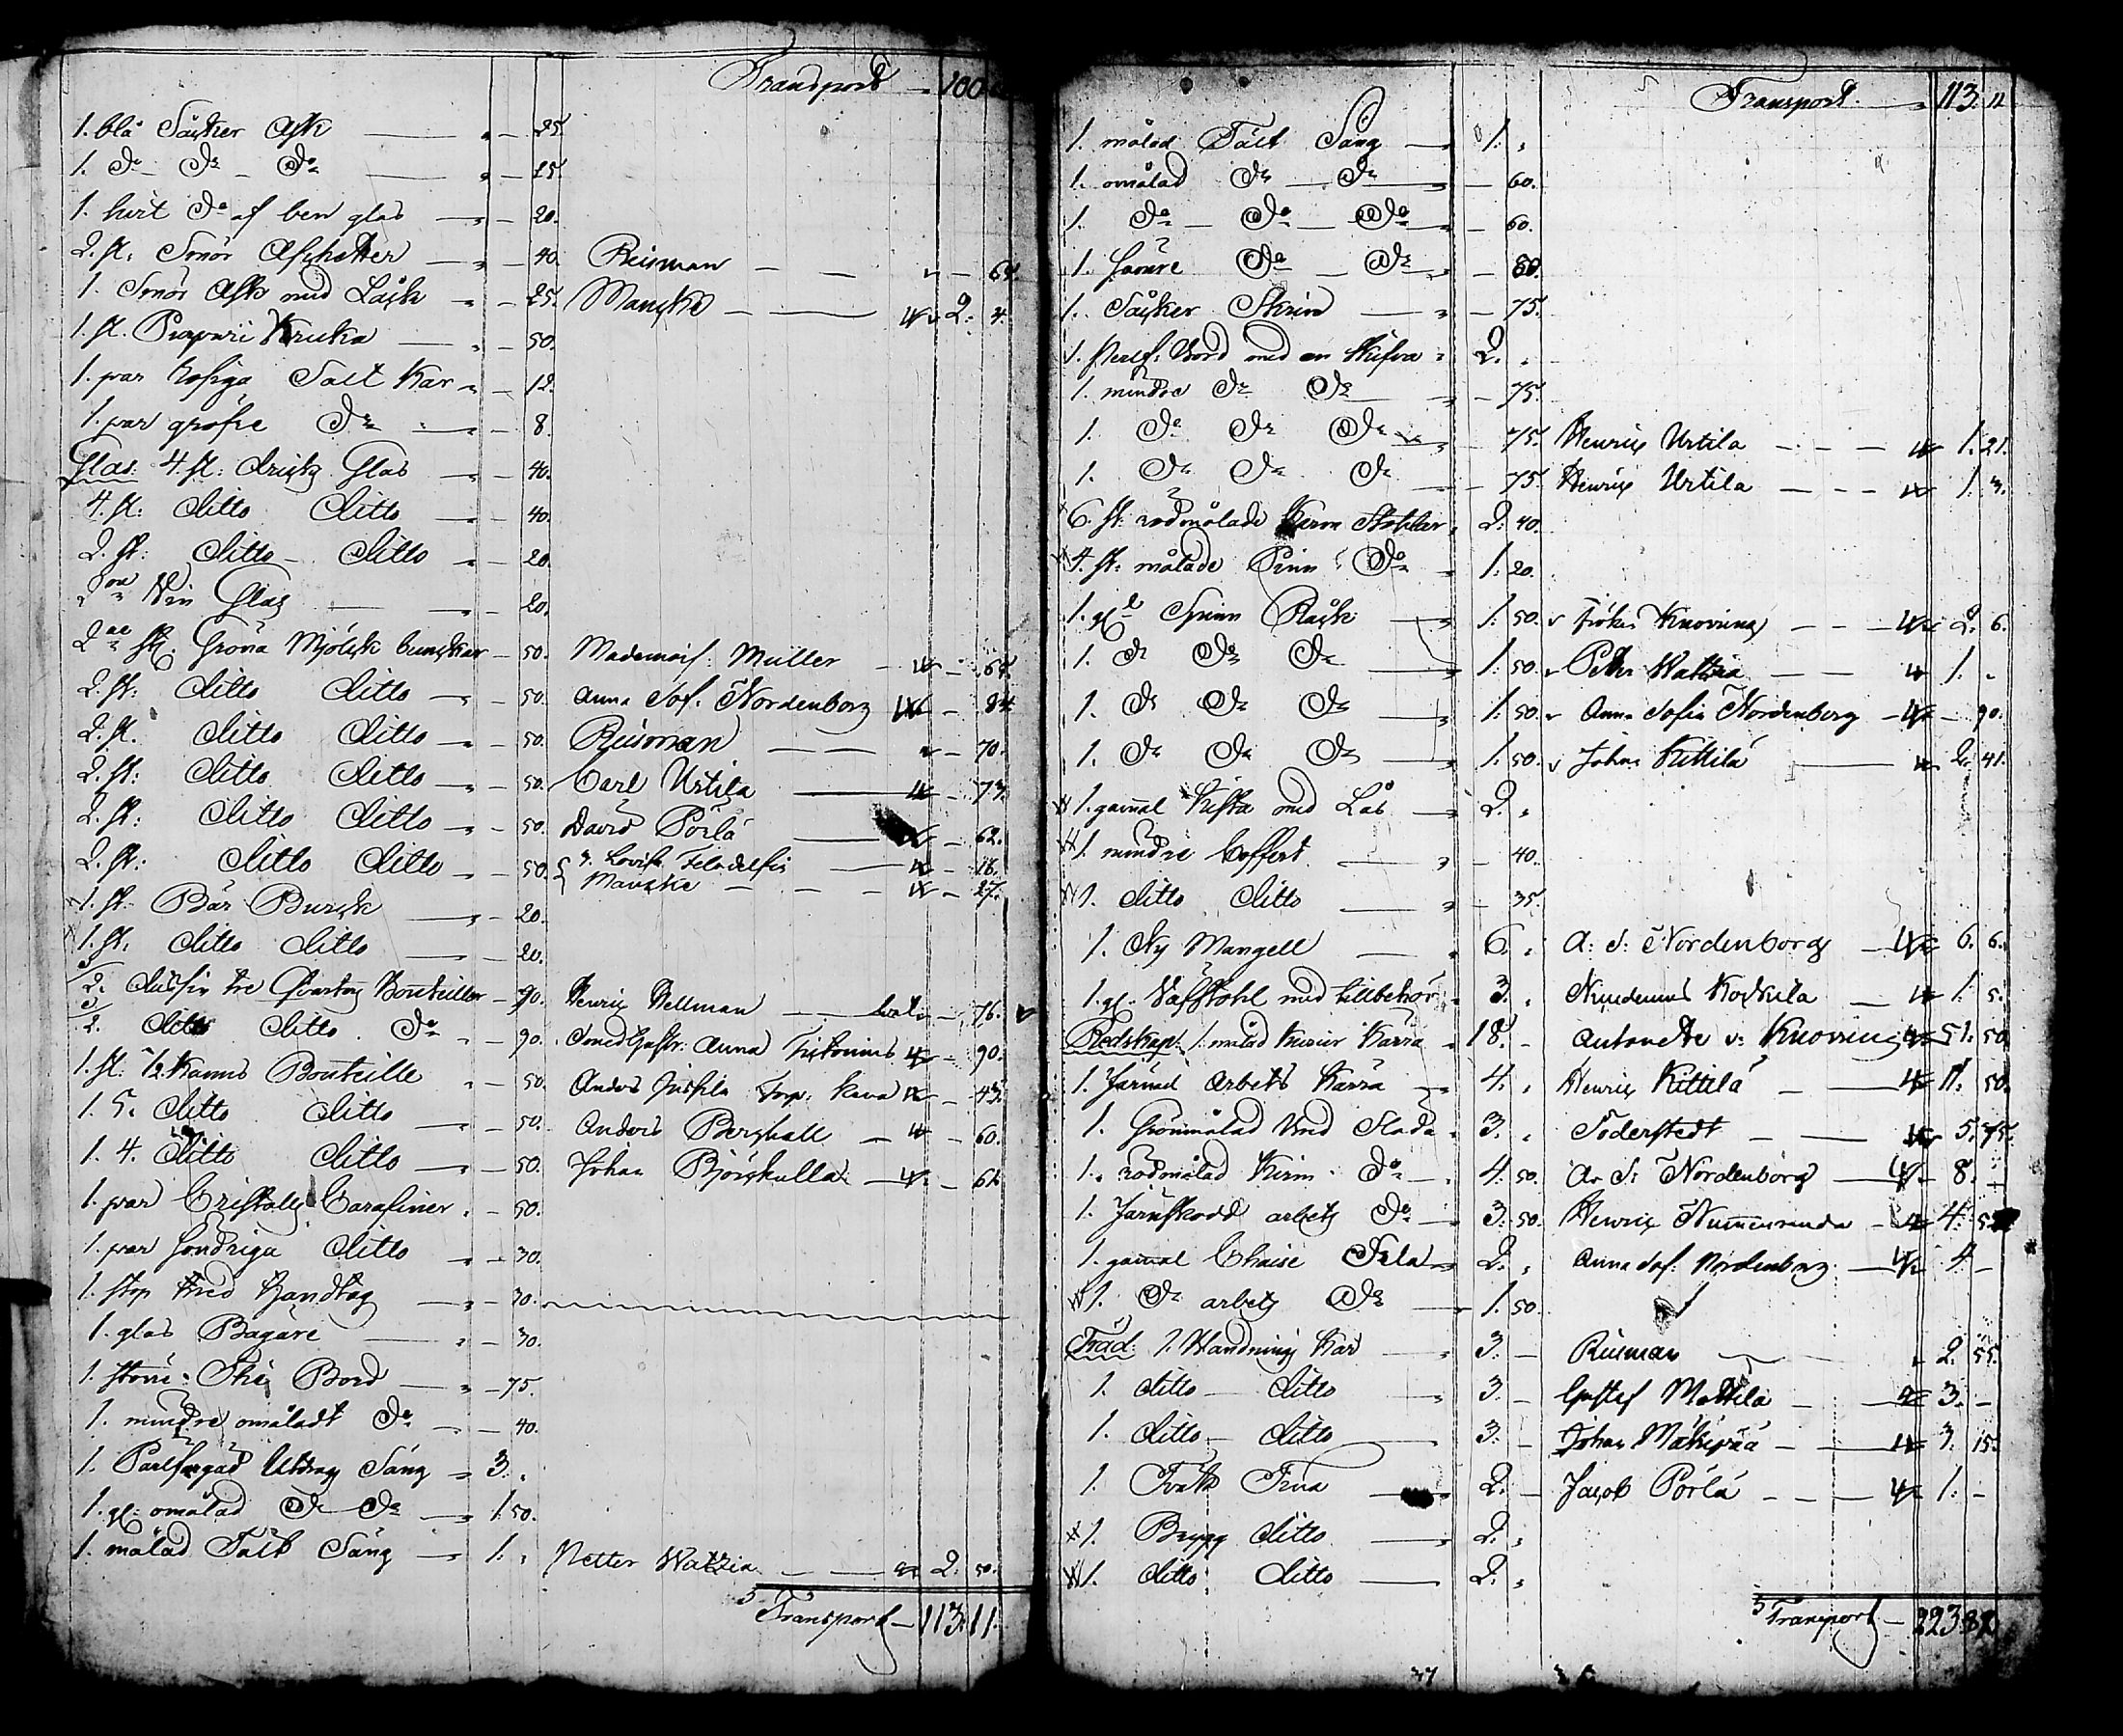 Transport — 100
1. blå Såcker Ask — „ — 25.
1. Do — Do — Do — „ — 25.
1. hvit Do af ben glas — „ — 20.
2. st. Smör — „ — 40. Reisman — — „ — 64.
1. Smör Ask med Låck „ — 25. Manske — — 2. 4.
1. st. Kruka — „ — 50.
1. par Salt Kar „ — 12.
1. par gröfre Do „ — 8.
Glas: 4 st: dricks Glas — „ — 40.
4. st: ditto ditto — „ — 40.
2. st: ditto — ditto — „ — 20.
Vin Glas — „ — 20.
2 st. Gröna Mjölck bunckar — 50. Mademois: Müller — — 64.
2. st: ditto ditto — „ — 50. Anna Sof. Nordenborg — 84.
2. st. ditto ditto — „ — 50. Reisman — — „ — 70.
2. st: ditto ditto — „ — 50. Carl Urtila — — 73.
2. st: ditto ditto — „ — 50. David Pörlä — — 62.
2. st: ditto ditto — „ — 50. { Lovisa — — 16.
Manske — — — — 27.
1. st. Bär Burck — „ — 20.
1. st. ditto ditto — „ — 20.
2. dussin tre Qvarters Bouteiller — 90. Henric Hellman — — 76.
2. ditto ditto Do „ — 90. Anna — 90.
1. st: 1/2 Kanns Bouteille „ — 50. Anders — 43.
1. 5. ditto ditto — „ — 50. Anders Berghäll — — 60.
1. 4. ditto ditto — „ — 50. Johan Björkulla — — 61.
1. par Cristalls Carafiner „ — 50.
1. par söndriga ditto „ — 30.
1. stop med Handtag — „ — 30.
1. glas Bägare — „ — 30.
1. större Thé Bord — „ — 75.
1. mindre omåladt Do — — 40.
1. Pärlfärgad Utdrag Säng — 3. „
1. gl: omålad Do Do — „ 1. 50.
1. målad Tält Säng — 1. „ Petter Watzia — — 2. 50.
Transport — 113. 11.
Transport — 113. 11
1. målad Tält Säng — 1. „
1. omålad Do — Do — „ — 60.
1. Do — Do — Do — „ — 60.
1. Do — Do — „ — 80.
1. Såcker Skrin — „ — 75.
1. Perlf: Bord med en Skifva „ 2. „
1. mindre Do Do — „ — 75.
1. Do Do Do — „ — 75. Henric Urtila — — — 1. 21.
1. Do Do Do — — 75. Henric Urtila — — — 1. 3.
6. st: rödmålade Karm Stohlar „ 2. 40.
4. st: målade Pinn Do — „ 1. 20.
1. gl Spinn Råck — „ 1. 50. Fröken Knorring — — — 2. 6.
1. Do Do Do — „ 1. 50. Petter Watzia — — 1. „
1. Do Do Do — „ 1. 50. Anna Sofia Nordenberg — — 90.
1. Do Do Do — „ 1. 50. Johan Kittilä — 2. 41.
1. gammal Kista med Lås — 2. „
1. mindre Coffert — „ — 40.
1. ditto ditto — „ — 35.
1. Ny Mangell — „ 6. „ A: S: Nordenborg — 6. 6.
1. gl. Väfstohl med tillbehör „ 3. „ Koskula — 1. 5.
Redskap: 1. målad Kärra „ 18. — Antonette v: Knorring 51. 50.
1. Järnad Arbets Kärra — 4. „ Henric Kittilä — — 11. 50.
1. Grönmålad Släda „ 3. „ Söderstedt — — 5. 75.
1. rödmålad Do — „ 4. 50. A. S: Nordenborg — 8. —
1. Järnskodd arbets Do — 3. 50. Henric — 4. 5
1. gammal Chaise Sela — 2. „ Anna Sof. Nordenborg — 4. —
1. Do arbets Do — 1. 50.
Träd: 1. Kar — „ 3. — Reisman — „ 2. 55.
1. ditto — ditto — „ 3. — Gustef Mattila — — 3. —
1. ditto — ditto — 3. — Johan — — 3. 15.
1. Tina — 2. — Jacob Pörlä — — — 1. —
1. Brygg ditto — „ 2. „
1. ditto ditto — 2. „
Transport — 223. 82